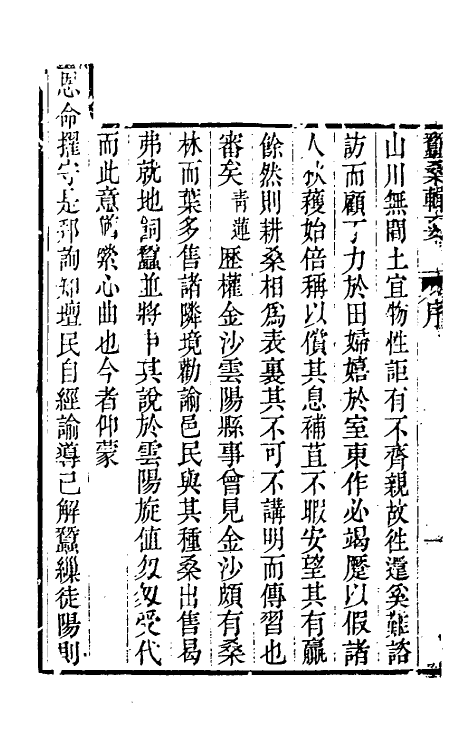 蠶桑輯要 序 一
山川無間土宜物性詎有不齊親故徃還奚難諮
訪而顧丁力於田婦嬉於室東作必竭蹷以假諸
人秋穫始倍稱以償其息補苴不暇安望其有贏
餘然則耕桑相爲表裏其不可不講明而傳習也
審矣青蓮歷權金沙雲陽縣事曾見金沙頗有桑
林而葉多售諸隣境勸諭邑民與其種桑出售曷
弗就地飼蠶並將申其說於雲陽旋值匆匆受代
而此意縈心曲也今者仰蒙
恩命擢守是郡詢知壇民自經諭導已解蠶繅徒陽則